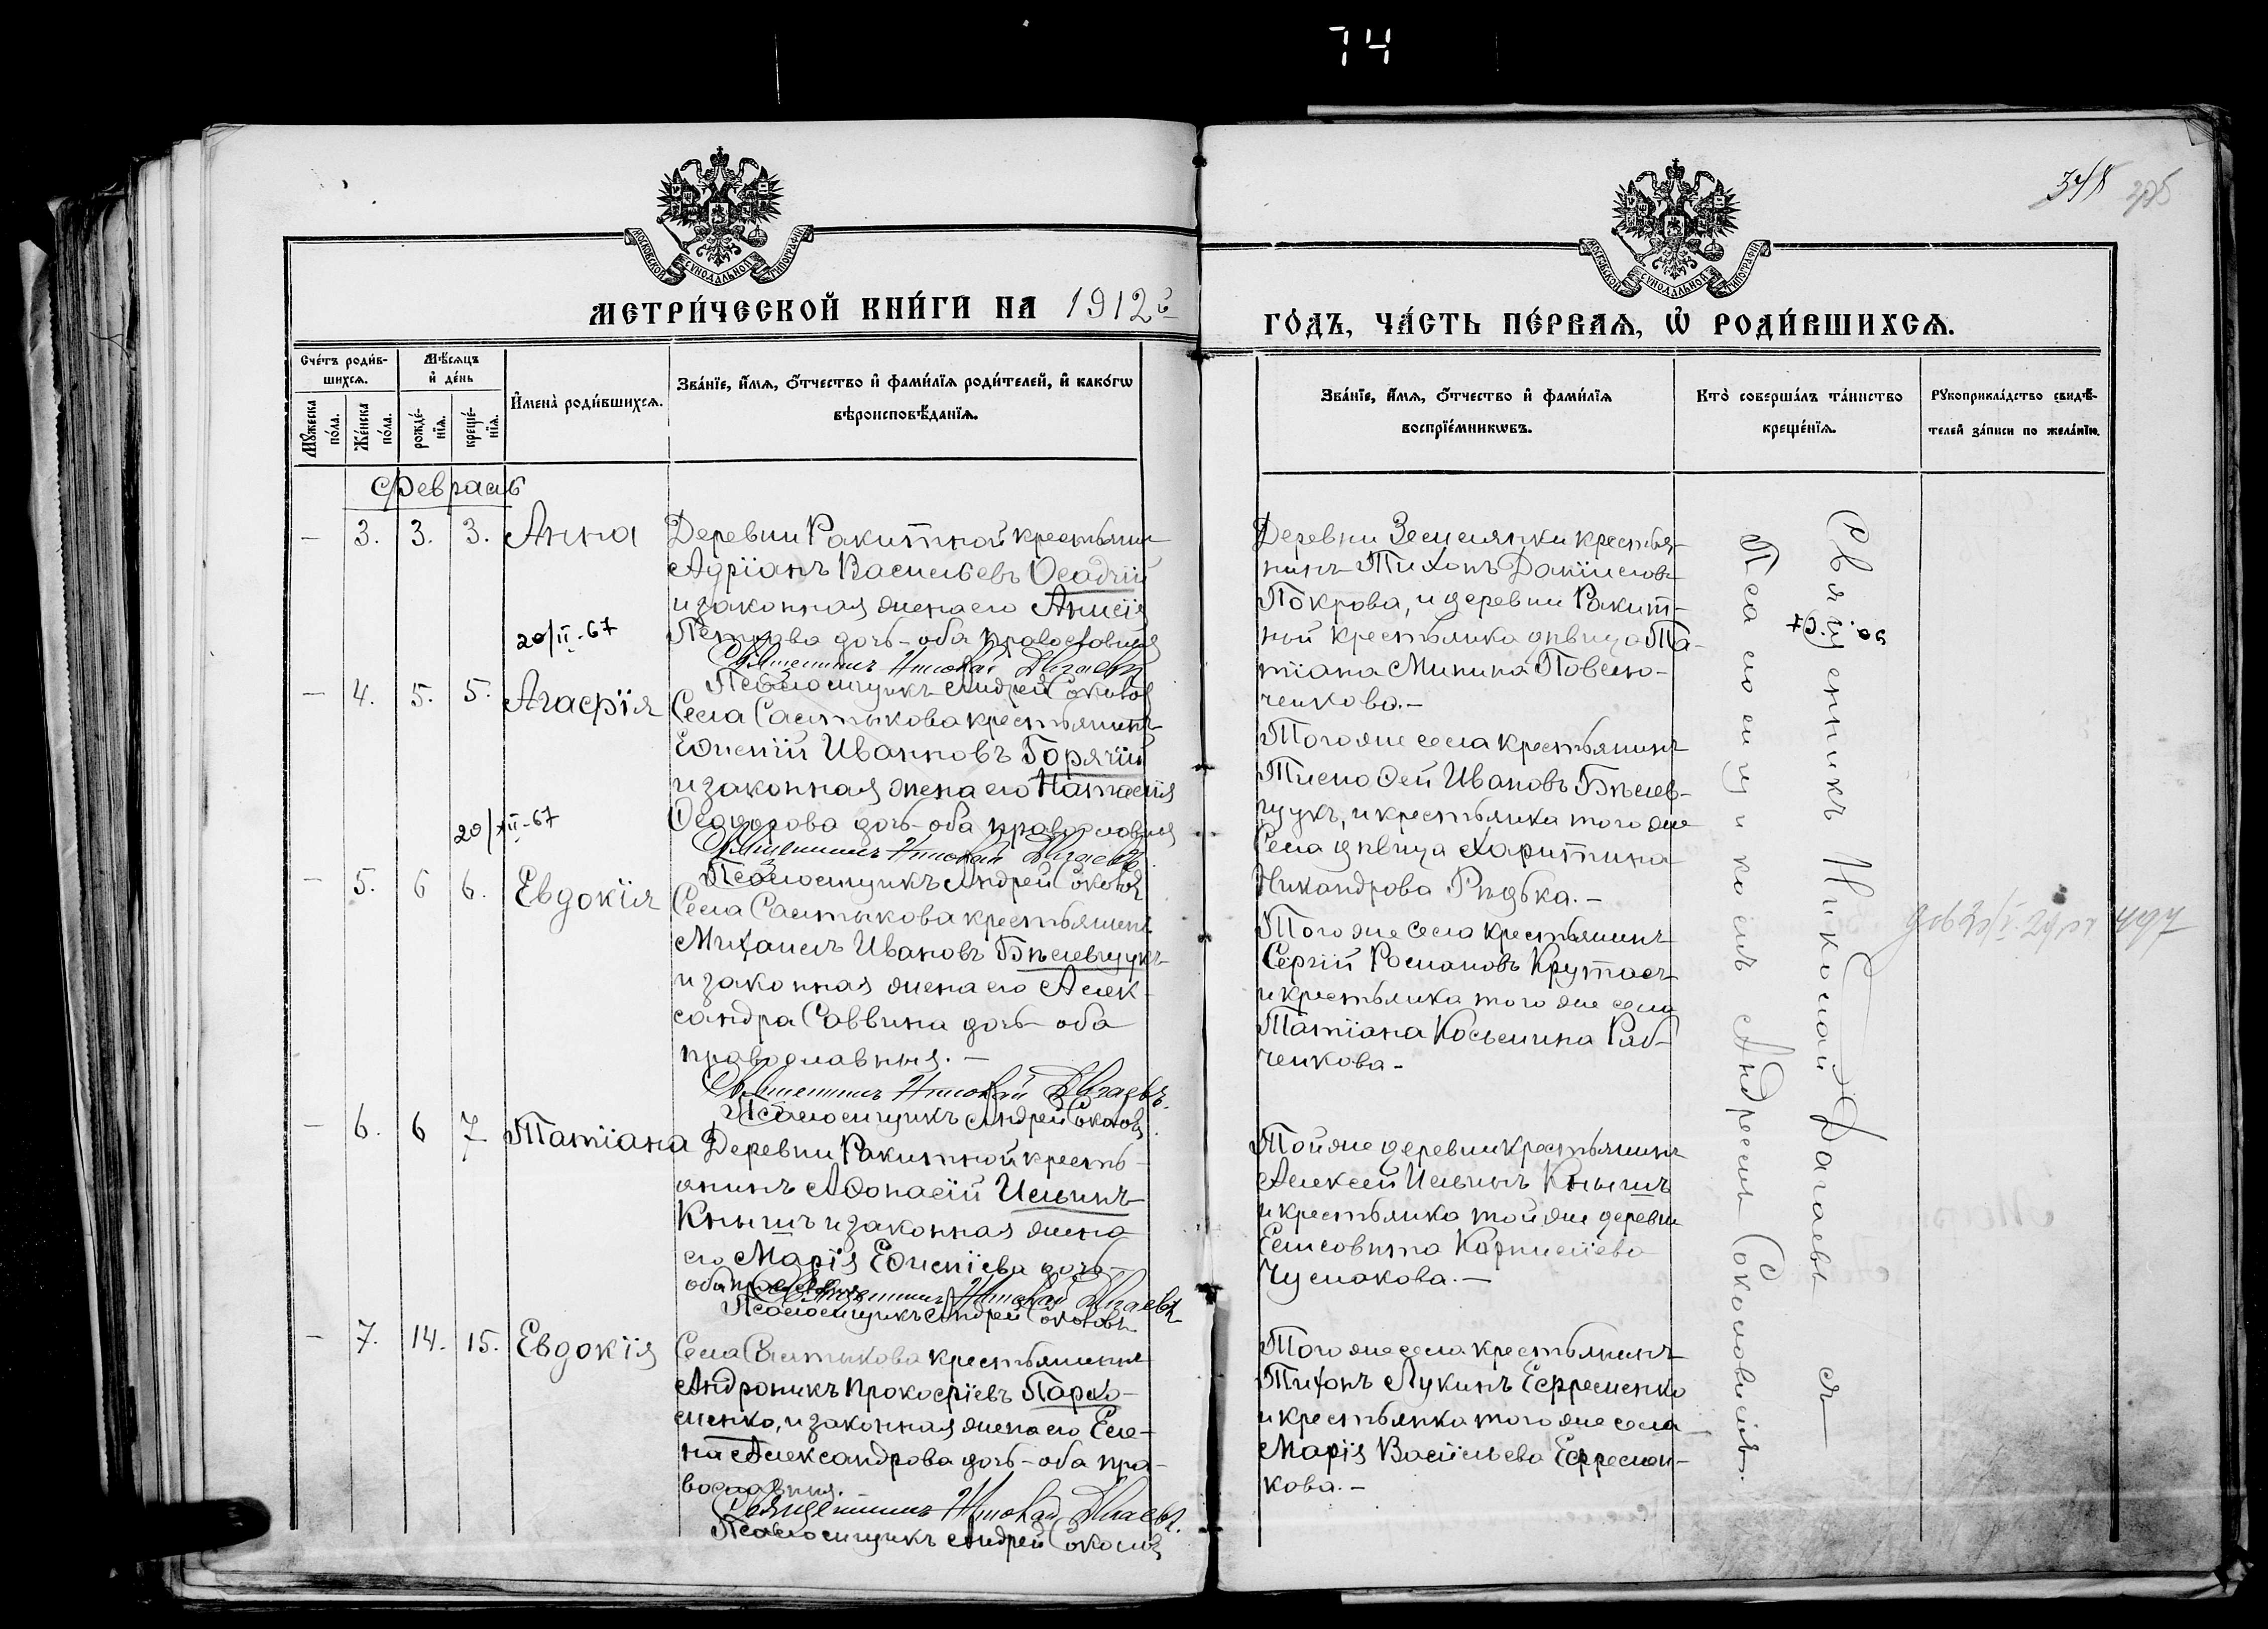 74
348
МОСКОВСКОЙ СѴНОДАЛЬНОЙ ТИПОГРАФІИ
МОСКОВСКОЙ СѴНОДАЛЬНОЙ ТИПОГРАФІИ
МЕТРИ́ЧЕСКОЙ КНИ́ГИ НА 1912й
ГО́ДЪ, ЧА́СТЬ ПЕ́РВАЯ, Ѡ҆ РОДИ́ВШИХСЯ.
Сче́тъ роди́в-
шихся.
Мꙋ́жеска по́ла.
Же́нска по́ла.
Мѣ́сяцъ и҆ де́нь
рожде́-
нїя.
креще́-
нїя.
И҆мена̀ роди́вшихся.
Зва́нїе, и҆́мя, ѻ҆́тчество и҆ фами́лїя роди́телей, и҆ како́гѡ
вѣроисповѣ́данїя.
Зва́нїе, и҆́мя, ѻ҆́тчество и҆ фами́лїя
воспрїе́мникѡвъ.
Кто̀ соверша́лъ та́инство
креще́нїя.
Рꙋкоприкла́дство свидѣ́-
телей за́писи по жела́нїю.
Февраль
— 3. 3. 3. Анна
Деревни Ракитной крестьянин
Адріанъ Васильевъ Осадчій
и законная жена его Анисія
Петрова дочь – оба православныя
20/II-67
Священникъ Николай Дагаевъ
Псаломщикъ Андрей Соколов
Деревни Землянки крестья-
нинъ Тихонъ Даніиловъ
Покрова, и деревни Ракит-
ной крестьянка дѣвица Та-
тіана Минина Повело-
ченкова.–
— 4. 5. 5. Агафія
Села Салтыкова крестьянинъ
Евменій Ивановъ Горячій
и законная жена его Наталія
Ѳеодорова дочь – оба православныя
20/XII-67
Священникъ Николай Дагаевъ.
Псаломщикъ Андрей Соколов
Того же села крестьянинъ
Тимоѳей Ивановъ Бѣлев-
цукъ, и крестьянка того же
Села дѣвица Харитина
Никандрова Рѣдька.–
— 5. 6 6. Евдокія
Села Салтыкова крестьянинъ
Михаилъ Ивановъ Бѣлевцукъ
и законная жена его Алек-
сандра Саввина дочь – оба
православныя.–
Священникъ Николай Дагаевъ.
Псаломщикъ Андрей Соколовъ.
Того же села крестьянинъ
Сергій Романовъ Крутась
и крестьянка того же села
Татіана Косьмина Ряб-
ченкова–
— 6. 6 7 Татіана
Деревни Ракитной кресть-
янинъ Аѳонасій Ильинъ
Кнышъ и законная жена
его Марія Евменіева дочь –
Священникъ Николай Дагаевъ
Псаломщикъ Андрей Соколовъ
Той же деревни крестьянинъ
Алексей Ильинъ Кнышъ
и крестьянка той же деревни
Елисовита Корнилiева
Чумакова.–
— 7. 14. 15. Евдокія
Села Салтыкова крестьянинъ
Андроникъ Прокофіевъ Пархо-
менко, и законная жена его Еле-
на Александрова дочь – оба пра-
вославныя.
Священникъ Николай Дагаевъ.
Псаломщикъ Андрей Соколов
Того же села крестьянинъ
Тихонъ Лукинъ Ефременко
и крестьянка того же села
Марія Васильева Ефремен-
кова.–
Священникъ Николай Дагаевъ съ
Псаломщикомъ Андреемъ Соколовымъ.